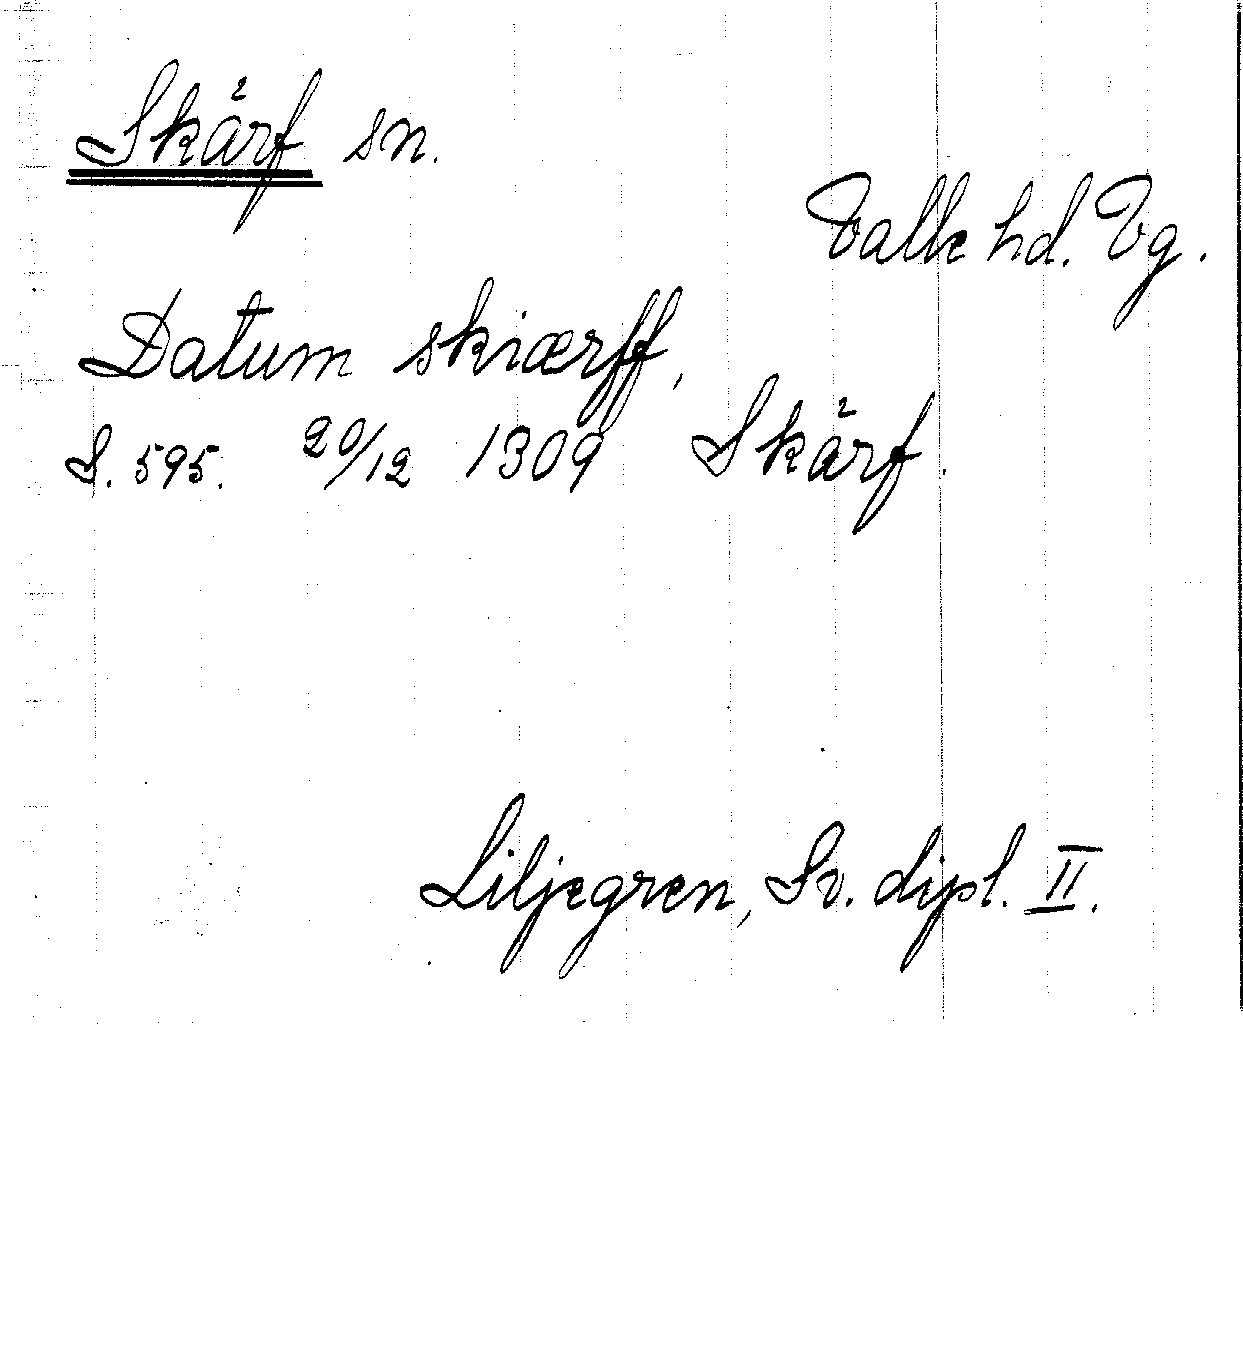 Skärf sn.
Valle hd. Vg.
Datum skiærff,
S. 595. 20/12 1309 Skärf.
Liljegren, Sv. dipl. II.